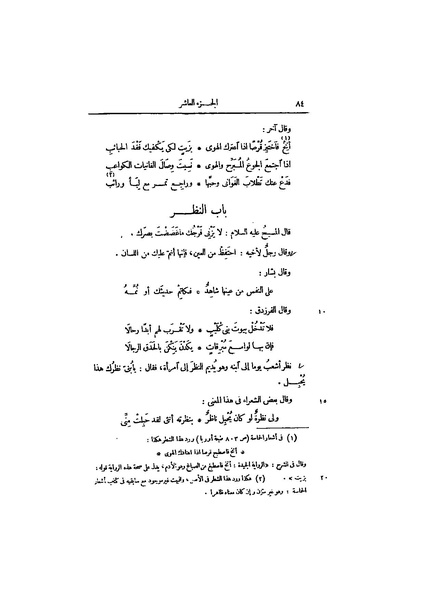 ٨٤ الجزء العاشر
وقال آخر :
(١)
أنخ فاختبز قُرصًا اذا اعترك الهوى * بزيت لكى يكفيك فقد الحبائب
اذا اجتمع الجوعُ المُبرِّح والهوى * نسيتَ وصال الغانيات الكواعب
فدع عنك تَطْلاب الغوانى وحبّها * وراجع تمر مع لِبَأ ورائب (٢)
باب النظر
قال المسيحُ عليه السلام : لا يَزْنِى فرْجُك ما غضضتَ بصرَك .
وقال رجلٌ لأخيه : احتفِظْ من العين، فإنها أنمّ عليك من اللسان .
وقال بشار :
على النفس من عينها شاهِدٌ * فكاتِمْ حديثَك أو نُمَّهُ
١٠ وقال الفرزدق :
فلا تدخُلْ بيوتَ بنى كُلَيْبٍ * ولا تَقْرَب لهم أبدًا رحالَا
فإن بها لوامعَ مُبرقات * يَكَدْن يَنِكْن بالحَدَق الرجالَا
نظر أشعبُ يوما إلى آبنه وهو يُديم النظر إلى آمرأة، فقال : يا بُنىّ نظرُك هذا
يُحبِل .
١٥ وقال بعض الشعراء فى هذا المعنى :
ولى نظرةٌ لو كان يُحبِل ناظرٌ * بنظرته أنثى لقد حَبِلتْ مِنِّى
(١) فى أشعار الحماسة (ص ٨٠٣ طبعة أوربا) ورد هذا الشطر هكذا :
* أنخ فاصطبغ قرصا اذا اعتادك الهوى *
وقال فى الشرح : «الرواية الجيدة : أنخ فاصطبغ من الصباغ وهو الأدم، يدل على صحة هذه الرواية قوله :
٢٠ بزيت» . (٢) هكذا ورد هذا الشطر فى الأصل، والبيت غير موجود مع سابقيه فى كتاب أشعار
الحماسة : وهو غير متزن وإن كان معناه ظاهرا .